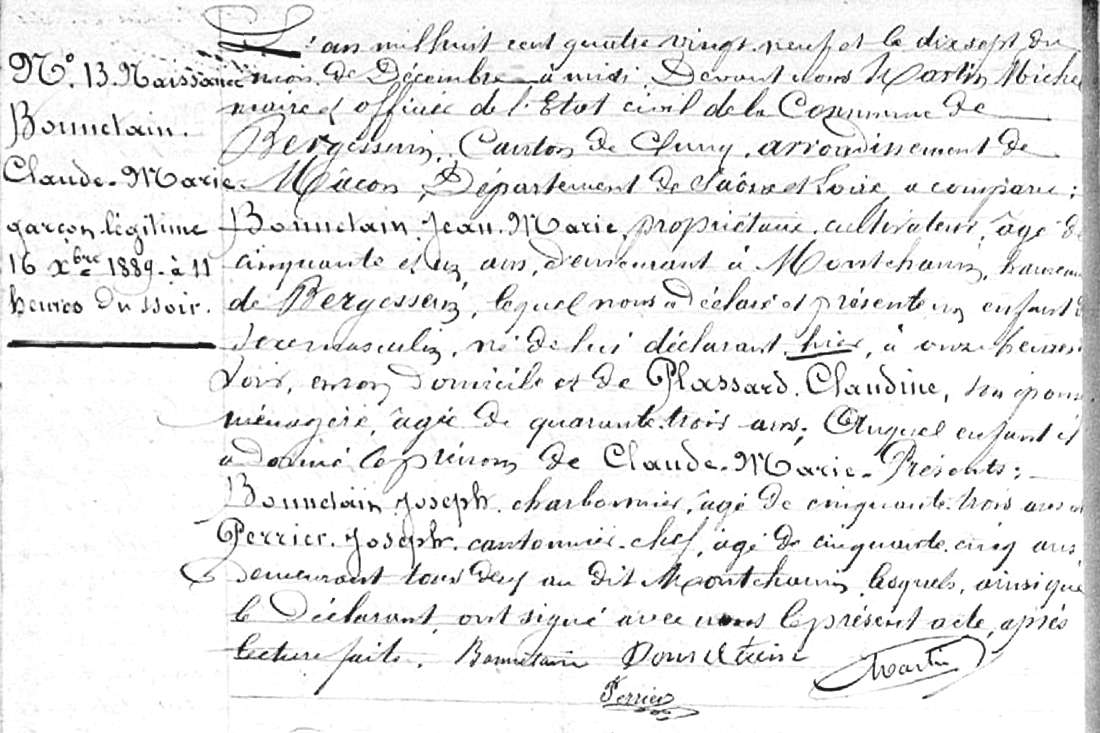 N.º 13. Naissance
Bonnetain.
Claude-Marie.
garçon légitime
16 Xbre 1889. à 11
heures du soir.
L'an mil huit cent quatre vingt-neuf et le dix sept du
mois de Décembre à midi Devant nous Martin Michel
maire et officier de l'Etat civil de la Commune de
Bergesserin, Canton de Cluny, arrondissement de
Mâcon, Département de Saône et Loire a comparu :
Bonnetain Jean-Marie, propriétaire cultivateur, âgé de
cinquante et un ans, demeurant à Montchanin, hameau
de Bergesserin, lequel nous a déclaré et présenté un enfant du
sexe masculin, né de lui déclarant hier, à onze heures
soir, en son domicile et de Plassard Claudine, son épouse
ménagère, âgée de quarante-trois ans; Auquel enfant il
a donné le prénom de Claude-Marie. Présents :
Bonnetain Joseph, charbonnier, âgé de cinquante-trois ans et
Perrier Joseph, cantonnier-chef, âgé de cinquante-cinq ans,
Demeurant tous deux au dit Montchanin, lesquels, ainsi que
le Déclarant, ont signé avec nous le présent acte, après
lecture faite. Bonnetain Bonnetain Martin
Perrier